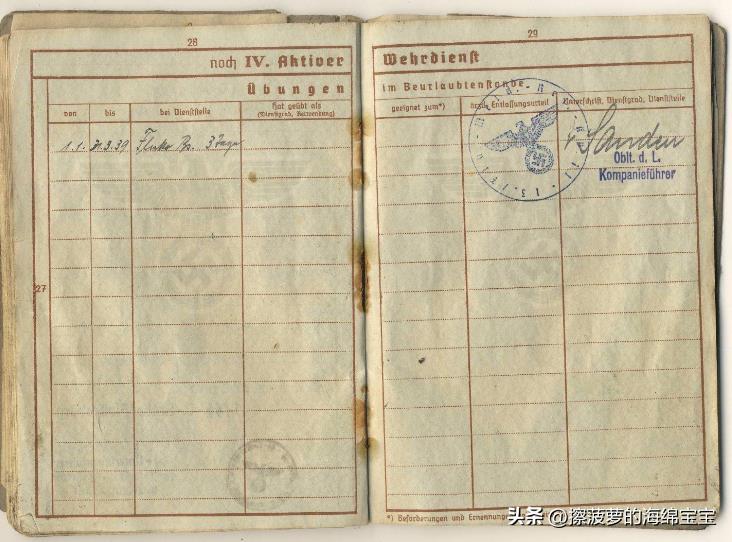 28
noch IV. Aktiver
Übungen
von
bis
bei Dienststelle
Hat geübt als
(Dienstgrad, Verwendung)
1.1.
31.3.39
3 Tage
27
29
Wehrdienst
im Beurlaubtenstande
geeignet zum*)
ärztl. Entlassungsurteil
Unterschrift, Dienstgrad, Dienststelle
Oblt. d. L.
Kompanieführer
*) Beförderungen und Ernennung
头条 @擦菠萝的海绵宝宝